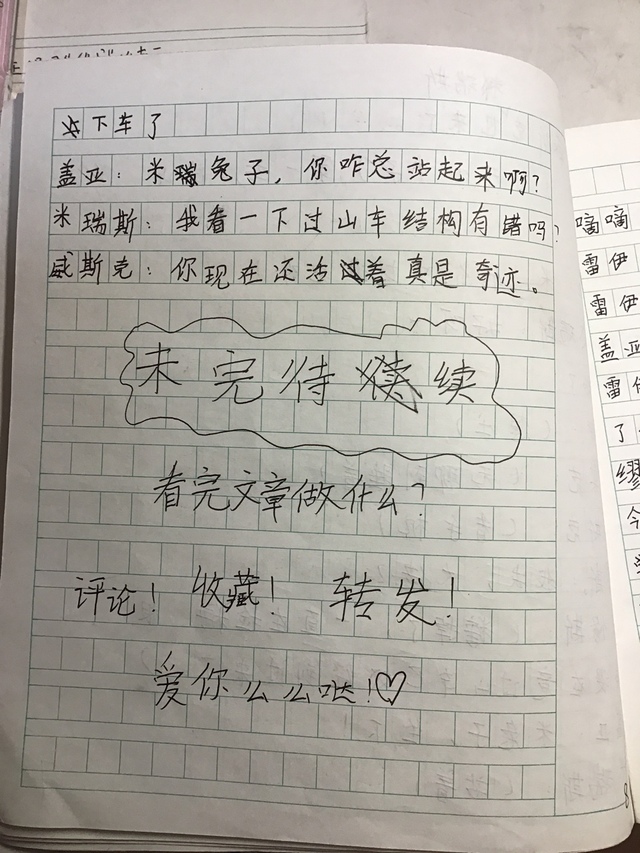 下车了
盖亚：米瑞兔子，你咋总站起来啊？
米瑞斯：我看一下过山车结构有错吗？
威斯克：你现在还活着真是奇迹。
未完待续
看完文章做什么？
评论！收藏！转发！
爱你么么哒！♡
嘀嘀
雷伊
雷伊
盖亚
雷伊
了
缪
今
8